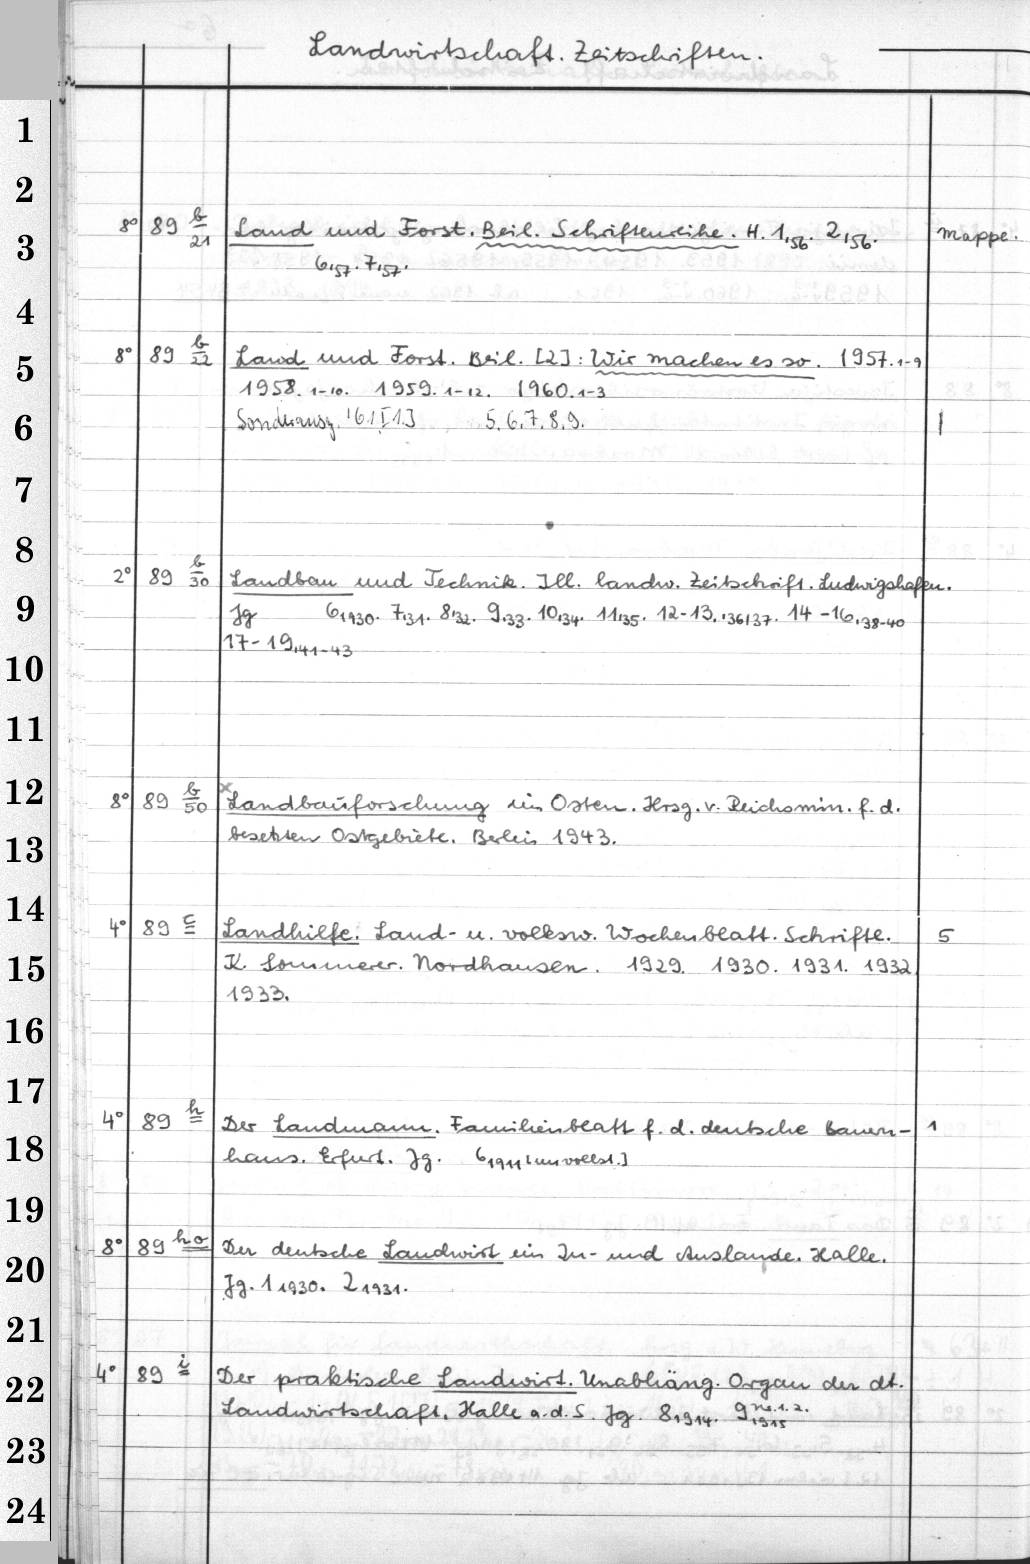 Landwirtschaft. Zeitschriften.
1
2
3 8° 89 b/21 Land und Forst. Beil. Schriftenreihe. H. 1,56. 2,56. Mappe.
6,57. 7,57.
4
5 8° 89 b/22 Land und Forst. Beil. [2]: Wir machen es so. 1957. 1-9
1958. 1-10. 1959. 1-12. 1960. 1-3
6 Sonderausg. '61 [1.] 5, 6, 7, 8, 9. 1
7
8
2° 89 b/30 Landbau und Technik. Ill. landw. Zeitschrift. Ludwigshafen.
9 Jg 6,1930. 7,31. 8,32. 9,33. 10,34. 11,35. 12-13,'36/37. 14-16,38-40
17-19,41-43
10
11
12 8° 89 b/50 x Landbauforschung im Osten. Hrsg. v. Reichsmin. f. d.
13 besetzten Ostgebiete. Berlin 1943.
14 4° 89 c Landhilfe. Land- u. volksw. Wochenblatt. Schriftl. 5
15 K. Sommerer. Nordhausen. 1929. 1930. 1931. 1932
1933.
16
17 4° 89 h Der Landmann. Familienblatt f. d. deutsche Bauern- 1
18 haus. Erfurt. Jg. 6 1911 [unvollst.]
19
8° 89 ho Der deutsche Landwirt im In- und Auslande. Halle.
20 Jg. 1 1930. 2 1931.
21
22 4° 89 i Der praktische Landwirt. Unabhäng. Organ der dt.
Landwirtschaft. Halle a. d. S. Jg. 8 1914. 9 1915 Nr. 1. 2.
23
24